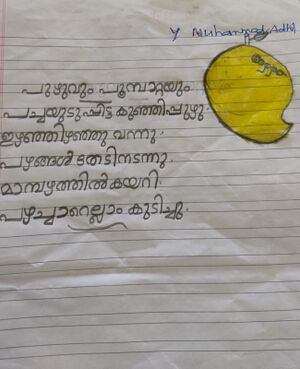 Y Muhammed Adhi
പുഴുവും പൂമ്പാറ്റയും
പച്ചയുടുപ്പിട്ട കുഞ്ഞിപ്പുഴു.
ഇഴഞ്ഞിഴഞ്ഞു വന്നു.
പഴങ്ങൾ തേടിനടന്നു.
മാമ്പഴത്തിൽകയറി.
പഴച്ചാറെല്ലാം കുടിച്ചു.